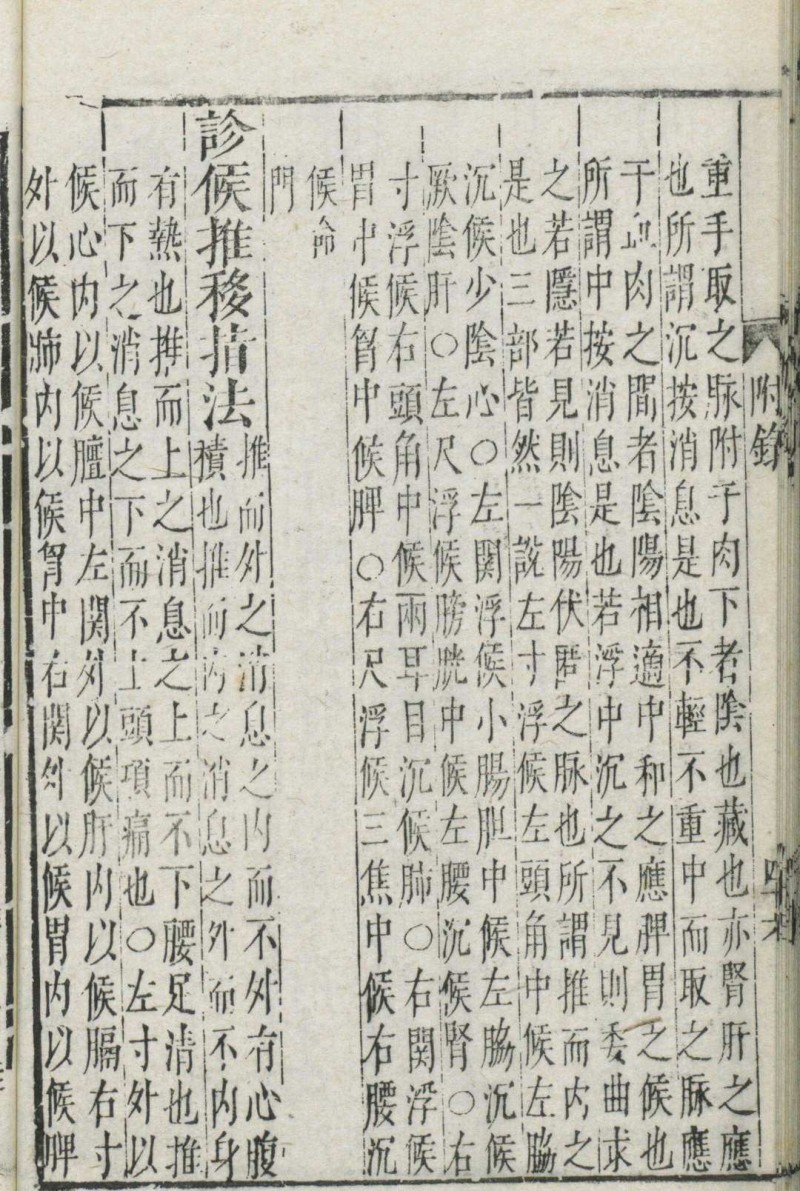 附錄
重手取之脉附于肉下者陰也藏也亦腎肝之應
也所謂沉按消息是也不輕不重中而取之脉應
于血肉之間者陰陽相適中和之應脾胃之候也
所謂中按消息是也若浮中沉之不見則委曲求
之若隱若見則陰陽伏匿之脉也所謂推而内之
是也三部皆然一說左寸浮候左頭角中候左脇
沉候少陰心○左関浮候小腸胆中候左脇沉候
厥陰肝○左尺浮候膀胱中候左腰沉候腎○右
寸浮候右頭角中候兩耳目沉候肺○右関浮候
胃中候胷中候脾○右尺浮候三焦中候右腰沉
候命
門
診候推移指法
推而外之消息之内而不外有心腹
積也推而内之消息之外而不内身
有熱也推而上之消息之上而不下腰足清也推
而下之消息之下而不上頭項痛也○左寸外以
候心内以候膻中左関外以候肝内以候膈右寸
外以候肺内以候胷中右関外以候胃内以候脾